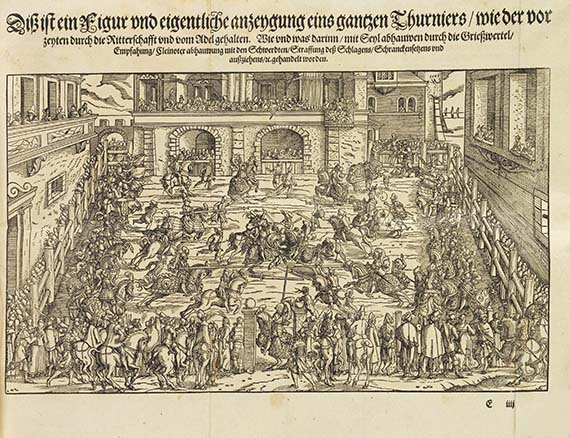 Diß ist ein Figur vnd eigentliche anzeygung eins gantzen Thurniers / wie der vor
zeyten durch die Ritterschafft vnd vom Adel gehalten. Wie vnd was darinn / mit Seyl abhauwen durch die Grießwertel /
Empfahung / Cleinoter abhauwung mit den Schwerdten / Straffung deß Schlagens / Schranckensetzens vnd
außziehens / ꝛc. gehandelt worden.
E iiij